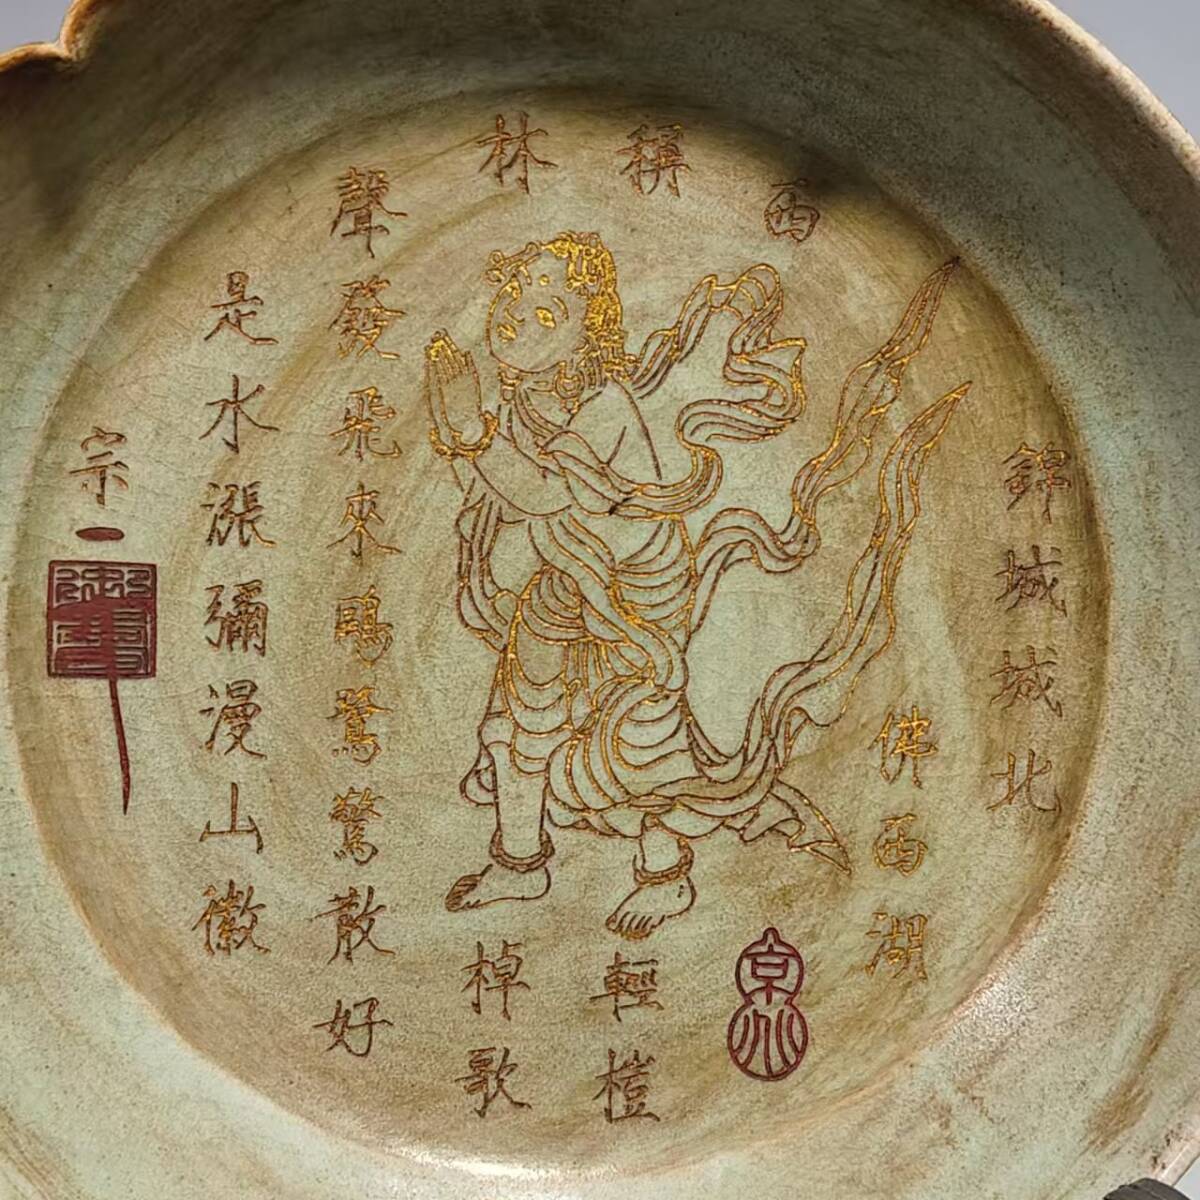 錦城城北
佛西湖
西
稱
輕榿
林
棹歌
聲發飛來鷗鷺驚散好
是水漲彌漫山徽
宗一
御書